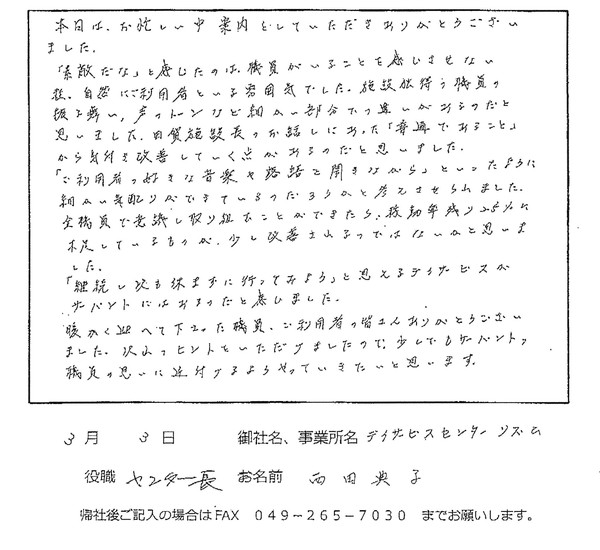 本日は、お忙しい中 案内をしていただきありがとうござい
ました。
「素敵だな」と感じたのは、職員がいることを感じさせない
程、自然にご利用者といる雰囲気でした。施設独得の職員の
振る舞い、声のトーンなど細かい部分での違いがあるのだと
思いました。田賀施設長のお話しにあった「普通であること」
から気付き改善していく点があるのだと思いました。
「ご利用者の好きな音楽や落語を聞きながら」といったように
細かい気配りができているのだろうかと考えさせられました。
全職員で意識し取り組むことができたら、稼動率残り25%に
不足しているものが、少し改善されるのではないかと思いま
した。
「継続し次も休まずに行ってみよう」と思えるデイサービスが
サーバントにはあるのだと感じました。
暖かく迎へて下さった職員、ご利用者の皆さんありがとうござい
ました。沢山のヒントをいただけましたので、少しでもサーバントの
職員の思いに近付けるようやっていきたいと思います。
3月 3日 御社名、事業所名 デイサービスセンター リズム
役職 センター長 お名前 西田 典子
帰社後ご記入の場合はFAX 049-265-7030 までお願いします。